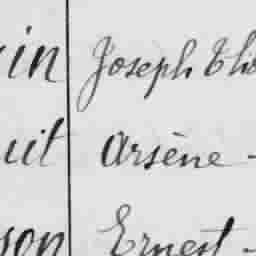 in Joseph Tho
uit Arsène -
son Ernest -